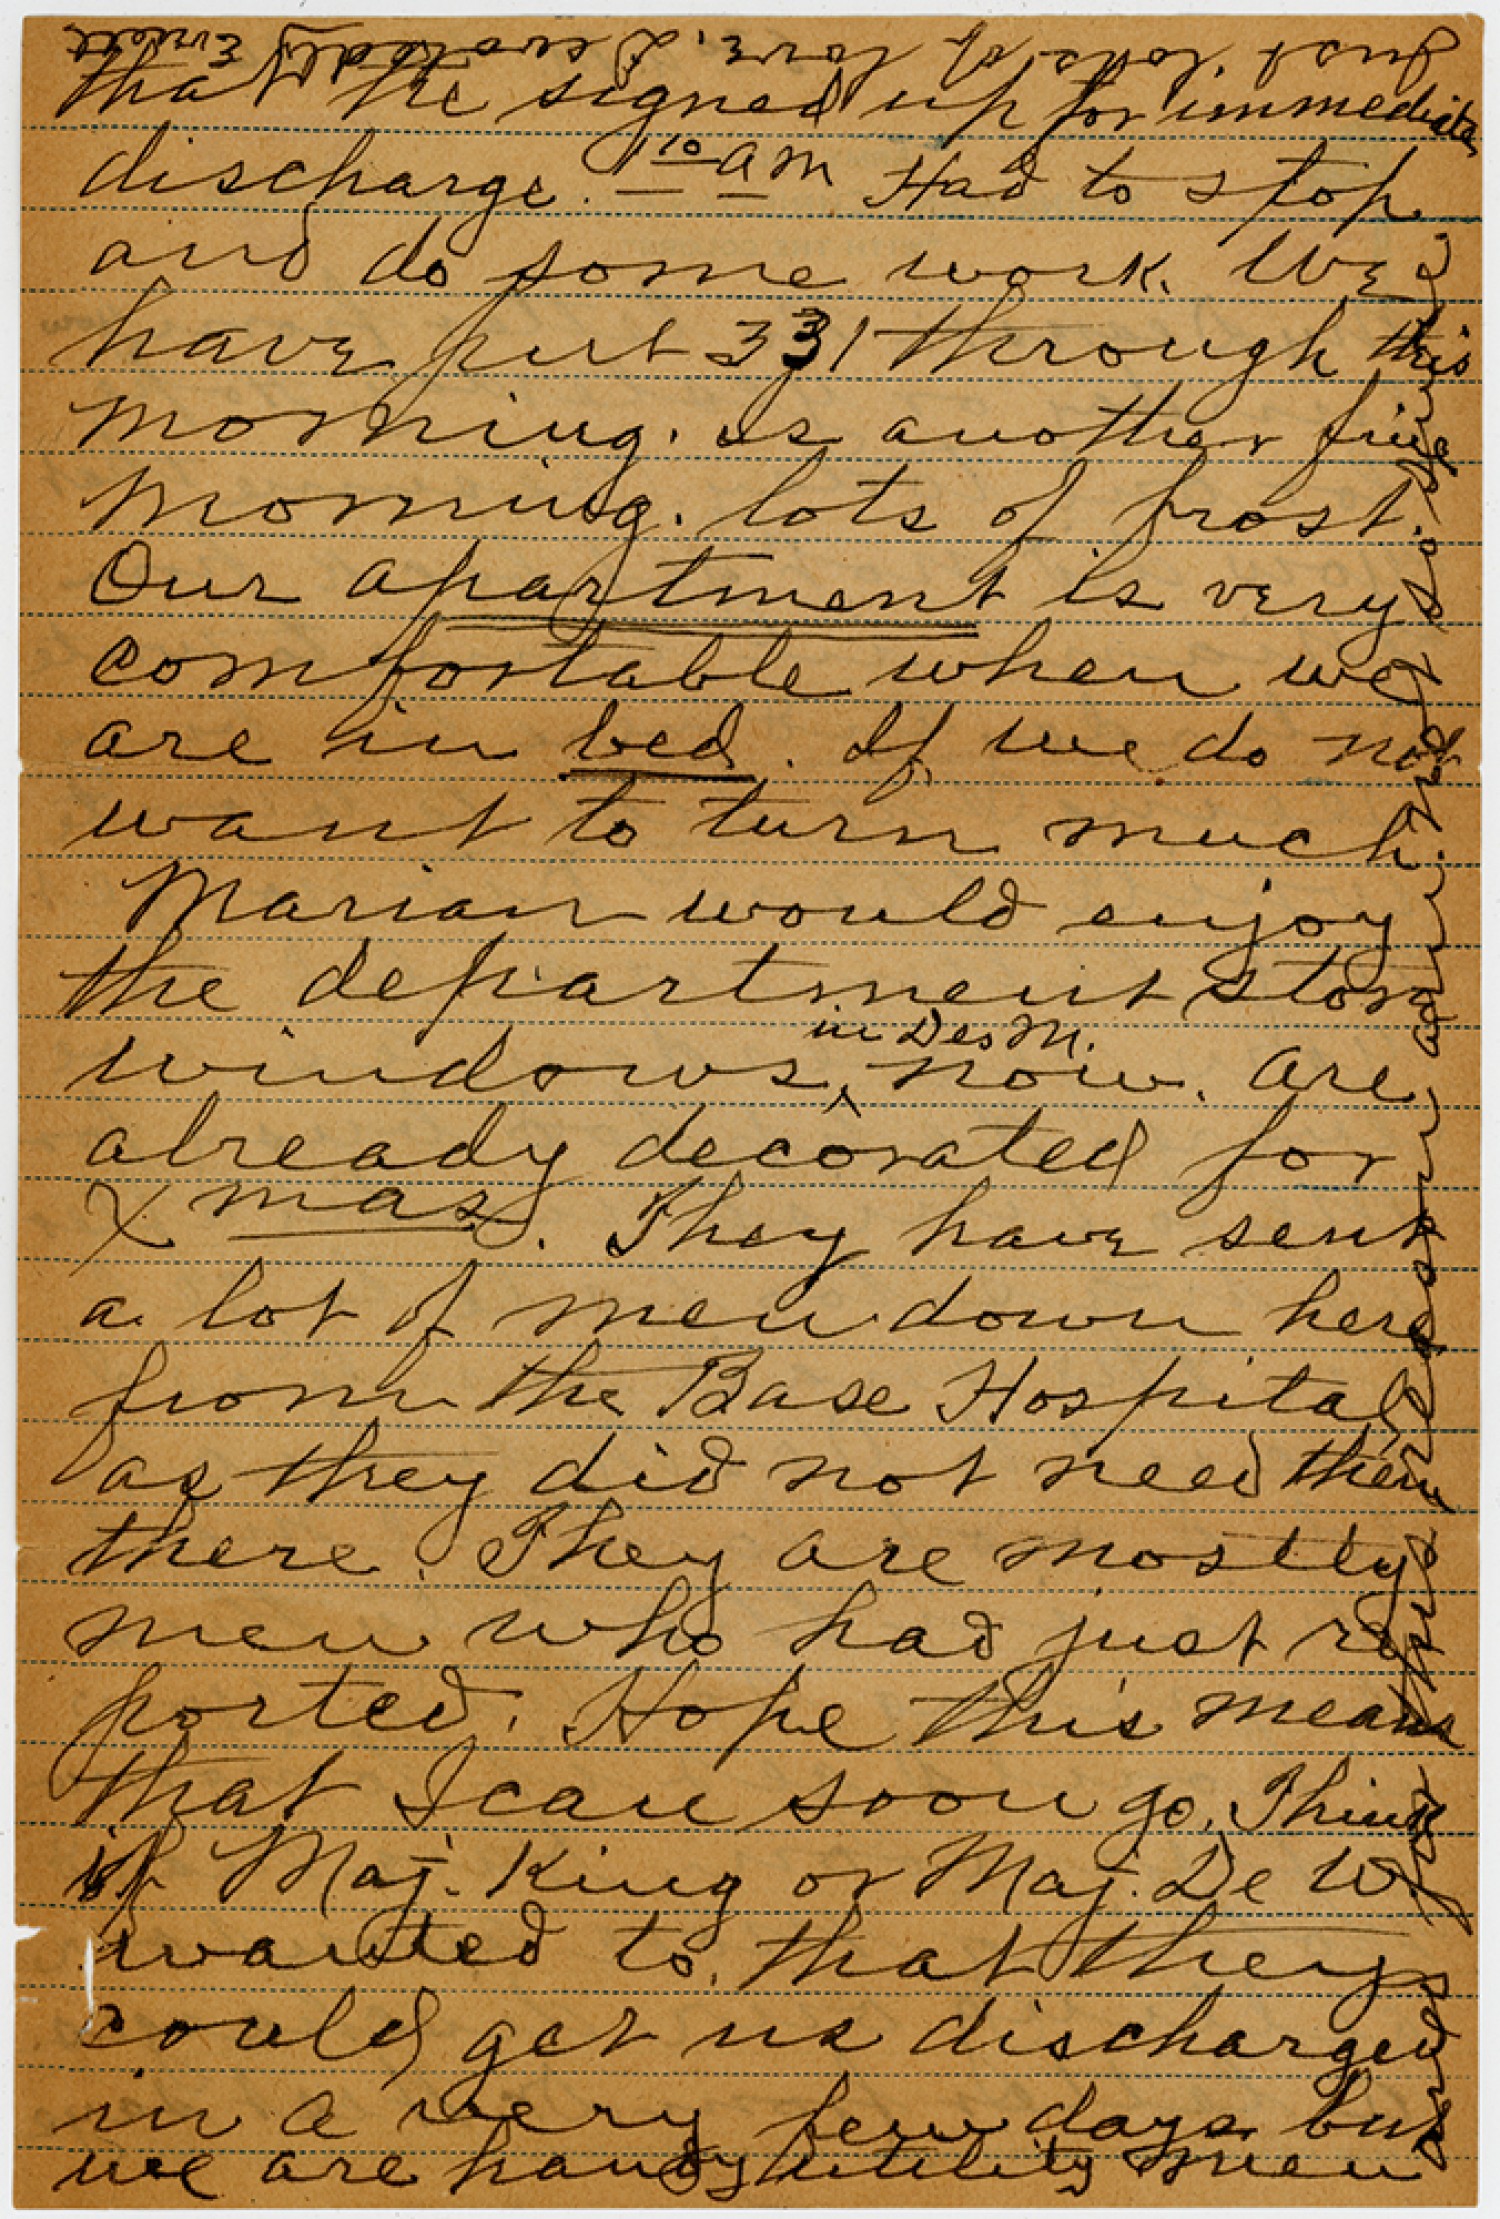 that he signed up for immediate
discharge. 1 10 am Had to stop
and do some work. We
have put 331 through this
morning. Is another fine
morning. lots of frost.
Our apartment is very
comfortable when we
are in bed. If we do not
want to turn much.
Marian would enjoy
the department store
windows, in Des M. now. are
already decorated for
X mas. They have sent
a lot of men down here
from the Base Hospital,
as they did not need them
there. They are mostly
men who had just re
ported. Hope this means
that I can soon go. Think
if Maj. King or Maj. De W.
wanted to, that they
could get us discharged
in a very few days but
we are handy utility men
and are
Just lots of love. Devotedly